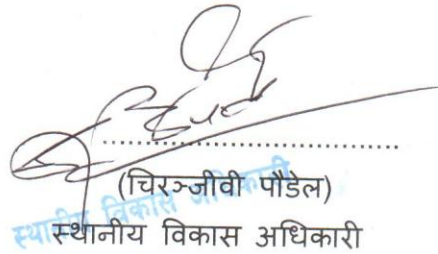 (चिरञ्जीवी पौडेल)
स्थानीय विकास अधिकारी
स्थानीय विकास अधिकारी